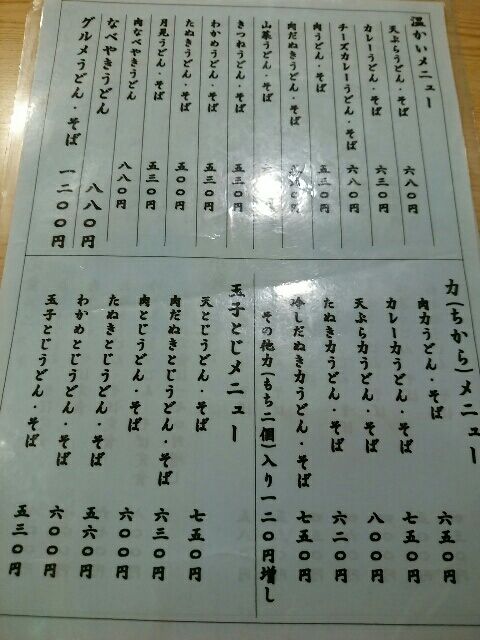 温かいメニュー
天ぷらうどん・そば 六八〇円
カレーうどん・そば 六三〇円
チーズカレーうどん・そば 六八〇円
肉うどん・そば 五三〇円
肉だぬきうどん・そば 八〇円
山菜うどん・そば 円
きつねうどん・そば 五三〇円
わかめうどん・そば 五三〇円
たぬきうどん・そば 五〇〇円
月見うどん・そば 五三〇円
肉なべやきうどん 八八〇円
なべやきうどん 八八〇円
グルメうどん・そば 一二〇〇円
力(ちから)メニュー
肉力うどん・そば 六五〇円
カレー力うどん・そば 七五〇円
天ぷら力うどん・そば 八〇〇円
たぬき力うどん・そば 六二〇円
冷しだぬき力うどん・そば 七五〇円
その他力(もち二個)入り一二〇円増し
玉子とじメニュー
天とじうどん・そば 七五〇円
肉だぬきとじうどん・そば 六三〇円
肉とじうどん・そば 六〇〇円
たぬきとじうどん・そば 五六〇円
わかめとじうどん・そば 六〇〇円
玉子とじうどん・そば 五三〇円